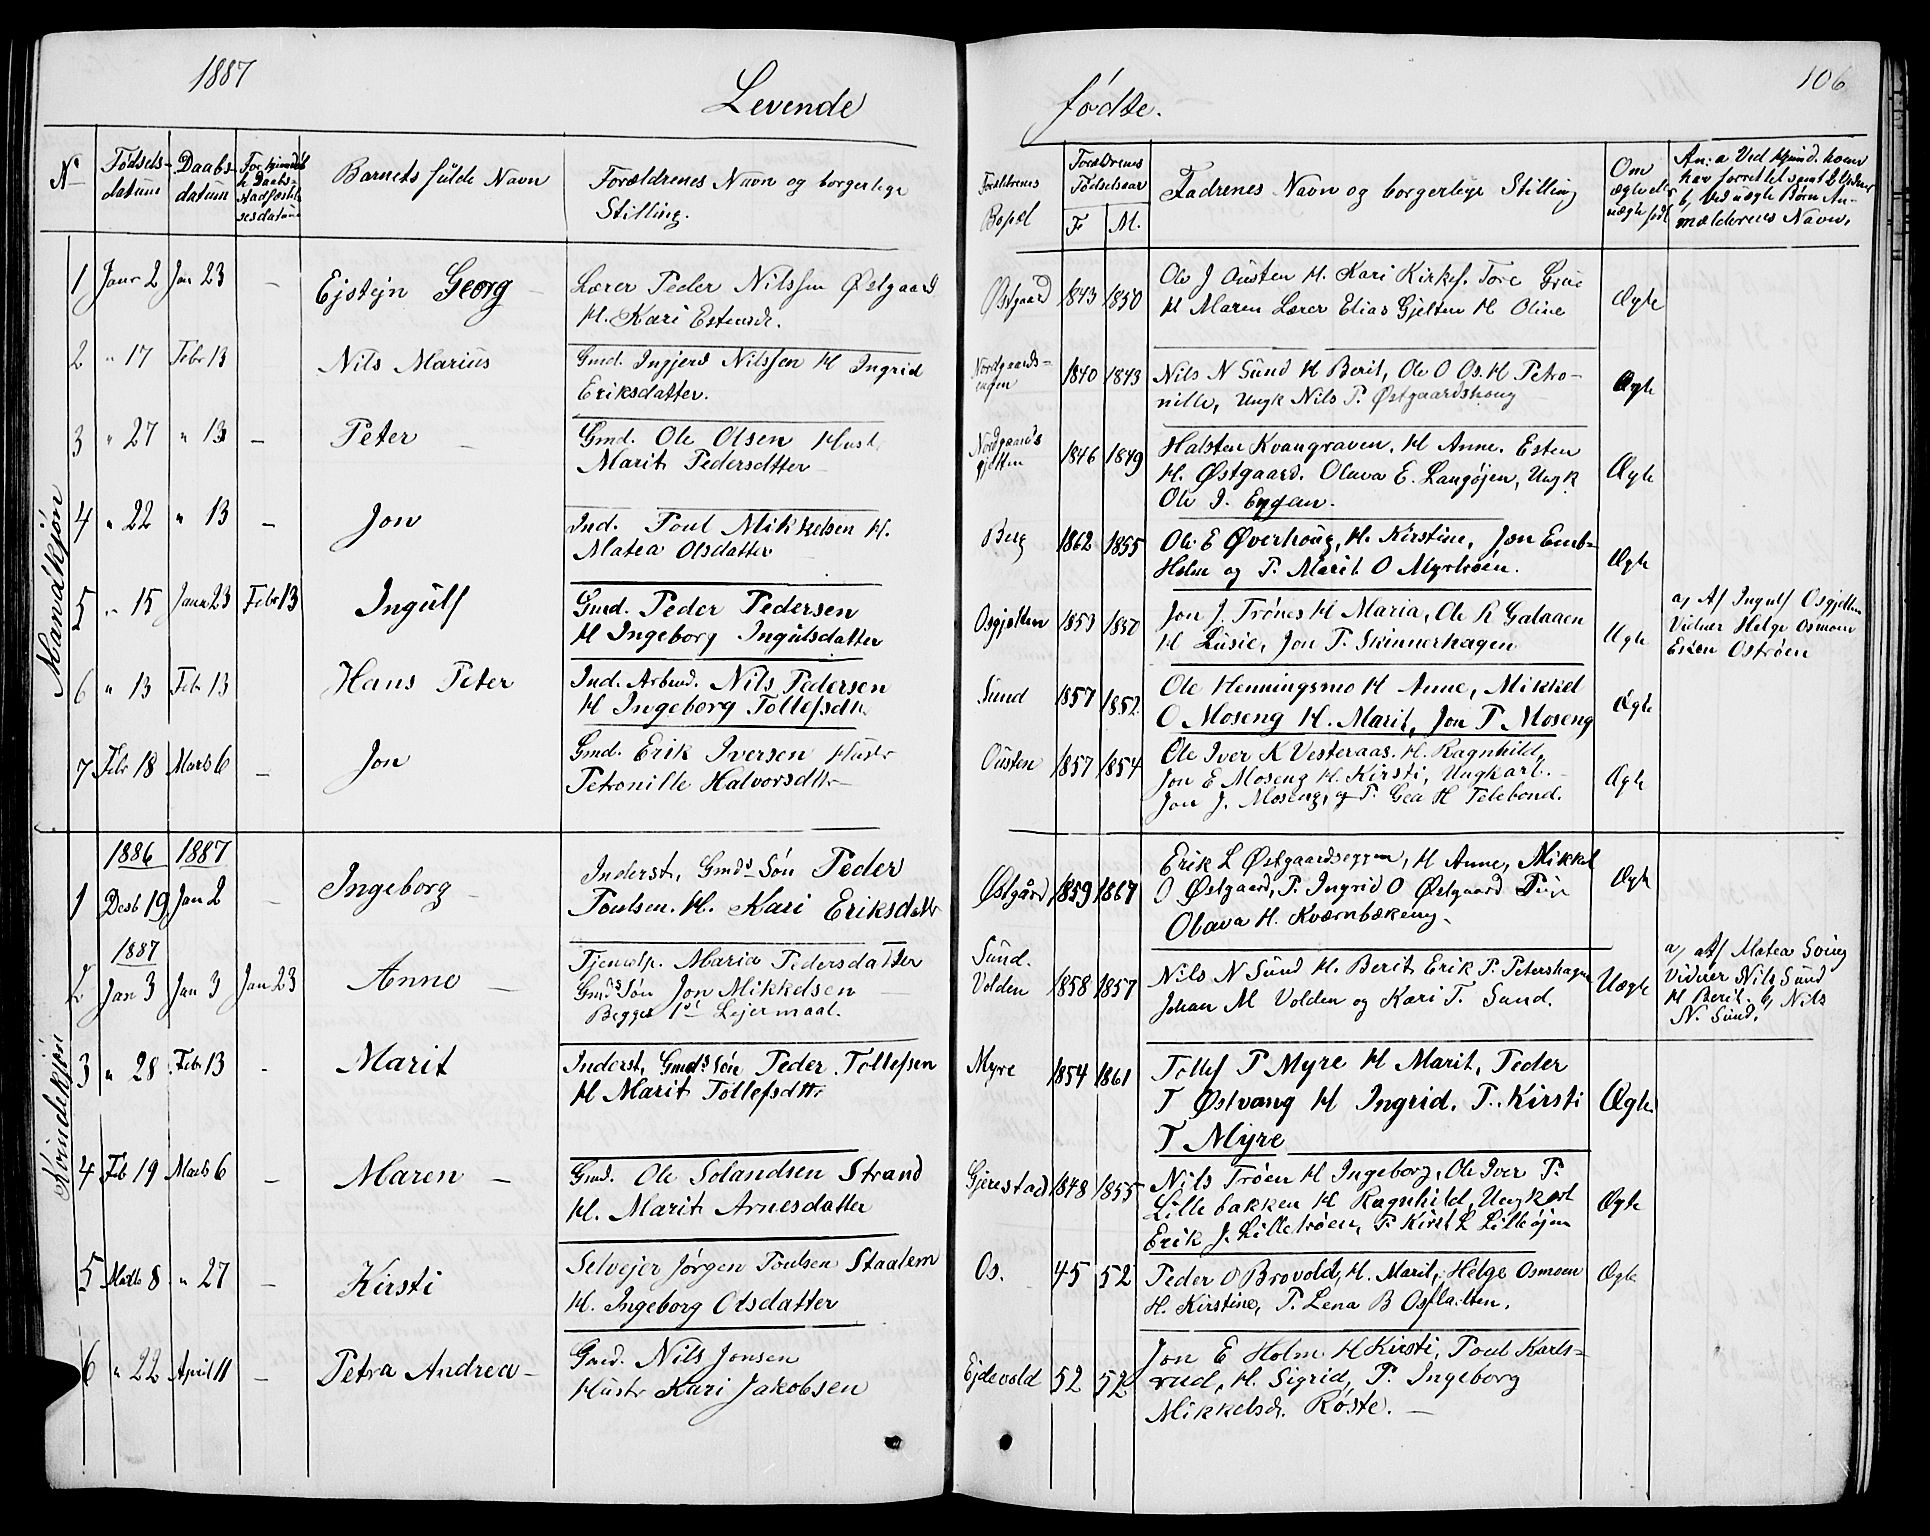 1887
Levende
fødte.
106
No
Fødsels-
datum
Daabs-
datum
Barnets fulde Navn
Forældrenes Navn og borgerlige
Stilling.
Forældrenes
Bopæl
Forældrenes
Fødselsaar
F
M.
Fadrenes Navn og borgerlige Stilling
Om
ægte eller
uægte født
An: a Ved Hjemd. hvem
har forrettet samt 2 Vidner
b, Ved uægte Børn An-
mælderens Navn.
Mandkjøn
1 Janr 2 Jan 23 – Ejstejn Georg –
Lærer Peder Nilssen Østgaard
H. Kari Estensdr.
Østgaard 1843 1850
Ole J Austen H. Kari Kirkef. Tore Grue
H Maren Lærer Elias Gjelten H Oline
Ægte
2 " 17 Febr 13 Nils Marius
Gmd. Ingjerd Nilssen H Ingrid
Eriksdatter.
Nordgaards-
engen 1840 1843
Nils N Sund H Berit, Ole O Os. H Petro-
nille, Ungk Nils P. Østgaardshoug
Ægte
3 " 27 " 13 – Peter –
Gmd. Ole Olsen Hust.
Marit Pedersdtter
Nordgaards
gjelten 1846 1849
Halsten Kvangraven. H Anne. Esten
H. Østgaard. Olava E. Langøjen, Ungk
Ole I. Engan.
Ægte
4 " 22 " 13 – Jon
Ind. Poul Mikkelsen H.
Matea Olsdatter
Berg 1862 1855
Ole E Øverhoug, H. Kirstine, Jon Emb-
Holm og P. Marit O Myrtrøen.
Ægte
5 " 15 Janr 23 Febr 13 Ingulf
Gmd. Peder Pedersen
H Ingeborg Ingulsdatter
Osgjelten 1853 1850
Jon J. Trønes H Maria, Ole R Galaaen
H Lusie, Jon P. Skinnerhagen
Ugte
a, Af Ingulf Osgjelten
Vidner Helge Osmoen
Esten Ostrøen
6 " 13 Feb 13 Hans Peter
Ind. Arbmd. Nils Pedersen
H Ingeborg Tollefsdtr.
Sund 1857 1852
Ole Henningsmo H Anne, Mikkel
O Moseng H. Marit, Jon P Moseng
Ægte
7 Feb 18 Marts 6 – Jon
Gmd. Erik Iversen Hustr
Petronille Halvorsdtr –
Ousten 1857 1854
Ole Iver K Vesteraas. H. Ragnhild,
Jon E Moseng H. Kirsti, Ungkarl.
Jon J. Moseng, og P. Gea H Telebond.
Ægte
Kvindekjøn
1886 1887
1 Desb 19 Jan 2 – Ingeborg –
Inderst, Gmds Søn Peder
Poulsen. H. Kari Eriksdatt
Østgård 1859 1867
Erik L Østgaardseggen, H Anne, Mikkel
O Østgaard, P. Ingrid O Østgaard
Olava H. Kværnbækeng.
Ægte
1887
2 Jan 3 Jan 3 Jan 23 Anne –
Tjenestp. Maria Pedersdatter
Gmds Søn Jon Mikkelsen
Begges 1st Lejermaal.
Sund.
Volden 1858 1857
Nils N Sund H. Berit Erik P. Petershagen
Johan M Volden og Kari T. Sund.
Uægte
a, Af Matea Sving
Vidner Nils Sund
H Berit. b, Nils
N. Sund.
3 " 28 Feb 13 - Marit
Inderst, Gmds Søn Peder Tollefsen
H Marit Tollefsdtr
Myre 1854 1861
Tollef P Myre H Marit, Peder
T Østvang H Ingrid. P. Kirsti
T Myre
Ægte
4 Feb 19 Marts 6 – Maren –
Gmd. Ole Solandsen Strand
H. Marit Arnesdatter
Gjerestad 1848 1855
Nils Trøen H Ingeborg, Ole Iver P.
Lillebakken H Ragnhild, Ungkarl
Erik J. Lilletrøen, P. Kirst L Lilløjen
Ægte
5 Marts 8 " 27 – Kirsti
Selvejer Jørgen Poulsen Staalem
H. Ingeborg Olsdatter
Os. 45 52
Peder O Brovold, H. Marit, Helge Osmoen
H. Kirstine, P. Lena B Osflaaten.
Ægte
6 " 22 April 11 – Petra Andrea –
Gmd. Nils Jonsen
Hustr Kari Jakobsen
Ejdevold 52 52
Jon E Holm. H Kirsti, Poul Karls-
rud, H. Sigrid, P. Ingeborg
Mikkelsd. Røste. –